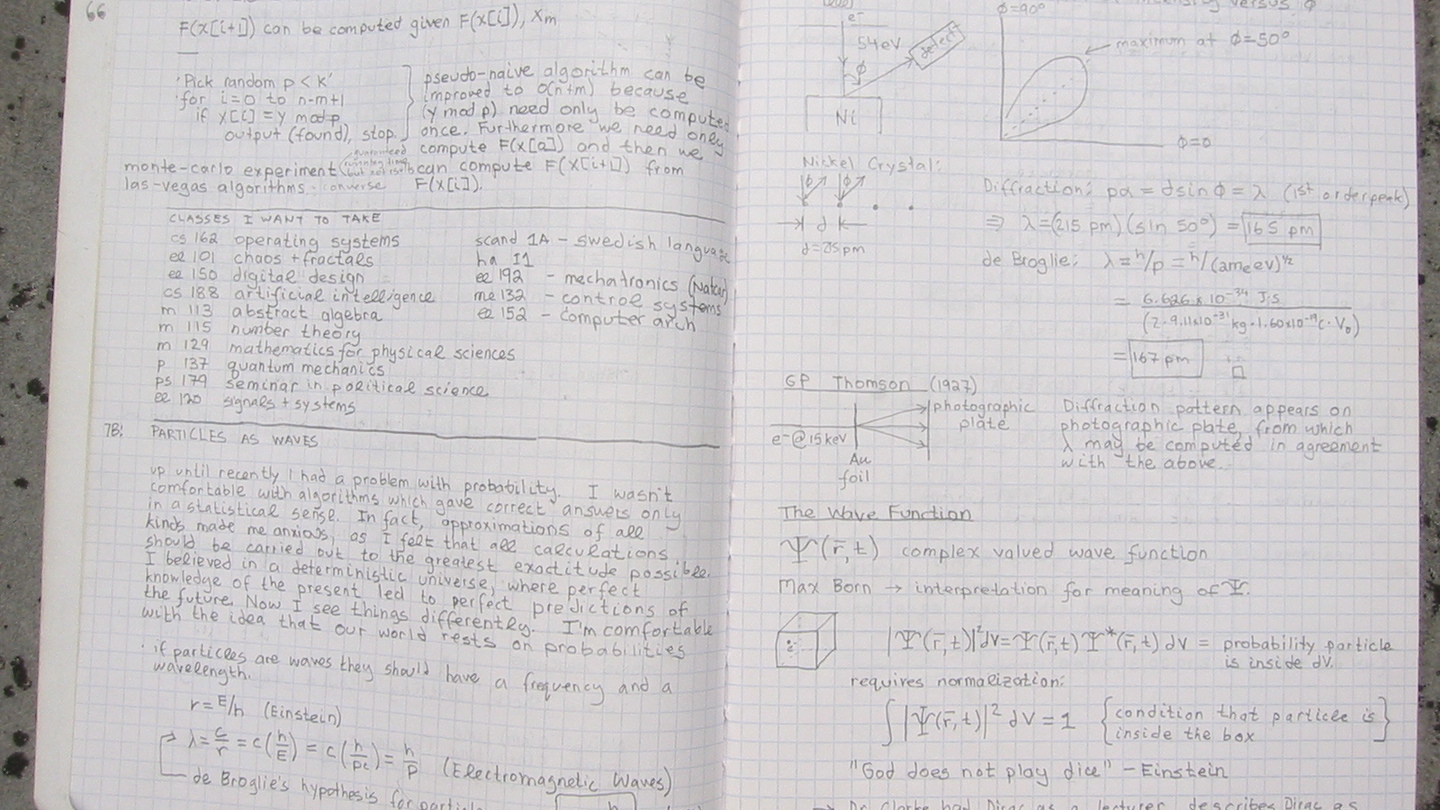 66
F(x[i+1]) can be computed given F(x[i]), xm
'Pick random p < k'
'for i=0 to n-m+1
if x[i] = y mod p
output (found), stop.
pseudo-naive algorithm can be
improved to O(n+m) because
(y mod p) need only be computed
once. Furthermore we need only
compute F(x[0]) and then we
can compute F(x[i+1]) from
F(x[i]).
monte-carlo experiment
las-vegas algorithms · converse
CLASSES I WANT TO TAKE
cs 162 operating systems
ee 101 chaos + fractals
ee 150 digital design
cs 188 artificial intelligence
m 113 abstract algebra
m 115 number theory
m 129 mathematics for physical sciences
p 137 quantum mechanics
ps 179 seminar in political science
ee 120 signals + systems
scand 1A - swedish language
ha 11
ee 192 - mechatronics
me 132 - control systems
ee 152 - computer arch
7B: PARTICLES AS WAVES
up until recently I had a problem with probability. I wasn't
comfortable with algorithms which gave correct answers only
in a statistical sense. In fact, approximations of all
kinds made me anxious, as I felt that all calculations
should be carried out to the greatest exactitude possible.
I believed in a deterministic universe, where perfect
knowledge of the present led to perfect predictions of
the future. Now I see things differently. I'm comfortable
with the idea that our world rests on probabilities
· if particles are waves they should have a frequency and a
wavelength.
r = E/h (Einstein)
λ = c/r = c(h/E) = c(h/pc) = h/p (Electromagnetic Waves)
de Broglie's hypothesis for
e⁻
54eV
detect
φ
Ni
versus φ
φ=90°
maximum at φ=50°
φ=0
Nickel Crystal:
φ φ
d
Diffraction: pa = d sin φ = λ (1st order peak)
⇒ λ = (215 pm)(sin 50°) = 165 pm
de Broglie: λ = h/p = h/(2meeV)^1/2
= 6.626 x 10⁻³⁴ J·s
(2·9.11x10⁻³¹ kg · 1.60x10⁻¹⁹ C · V₀)
= 167 pm
GP Thomson (1927)
e⁻ @ 15 keV
Au
foil
photographic
plate
Diffraction pattern appears on
photographic plate, from which
λ may be computed in agreement
with the above.
The Wave Function
Ψ(r̄,t) complex valued wave function
Max Born → interpretation for meaning of Ψ.
|Ψ(r̄,t)|²dV = Ψ(r̄,t) Ψ*(r̄,t) dV = probability particle
is inside dV.
requires normalization:
∫ |Ψ(r̄,t)|² dV = 1 {condition that particle is
inside the box}
"God does not play dice" - Einstein
→ Dr. Clarke had Dirac as a lecturer, describes Dirac as